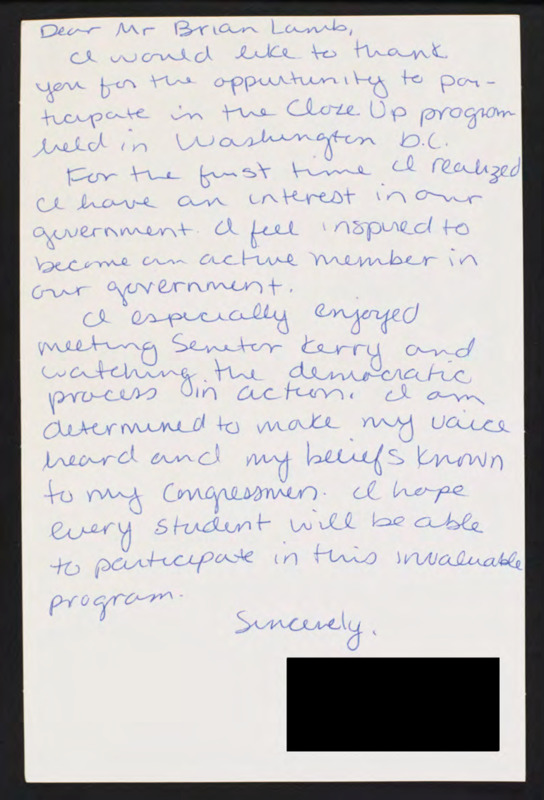 Dear Mr Brian Lamb,
I would like to thank
you for the oppurtunity to par-
ticipate in the Close Up program
held in Washington D.C.
For the first time I realized
I have an interest in our
government. I feel inspired to
become an active member in
our government.
I especially enjoyed
meeting Senetor Kerry and
watching the democratic
process in action. I am
determined to make my voice
heard and my beliefs known
to my congressmen. I hope
every student will be able
to participate in this invaluable
program.
Sincerely,